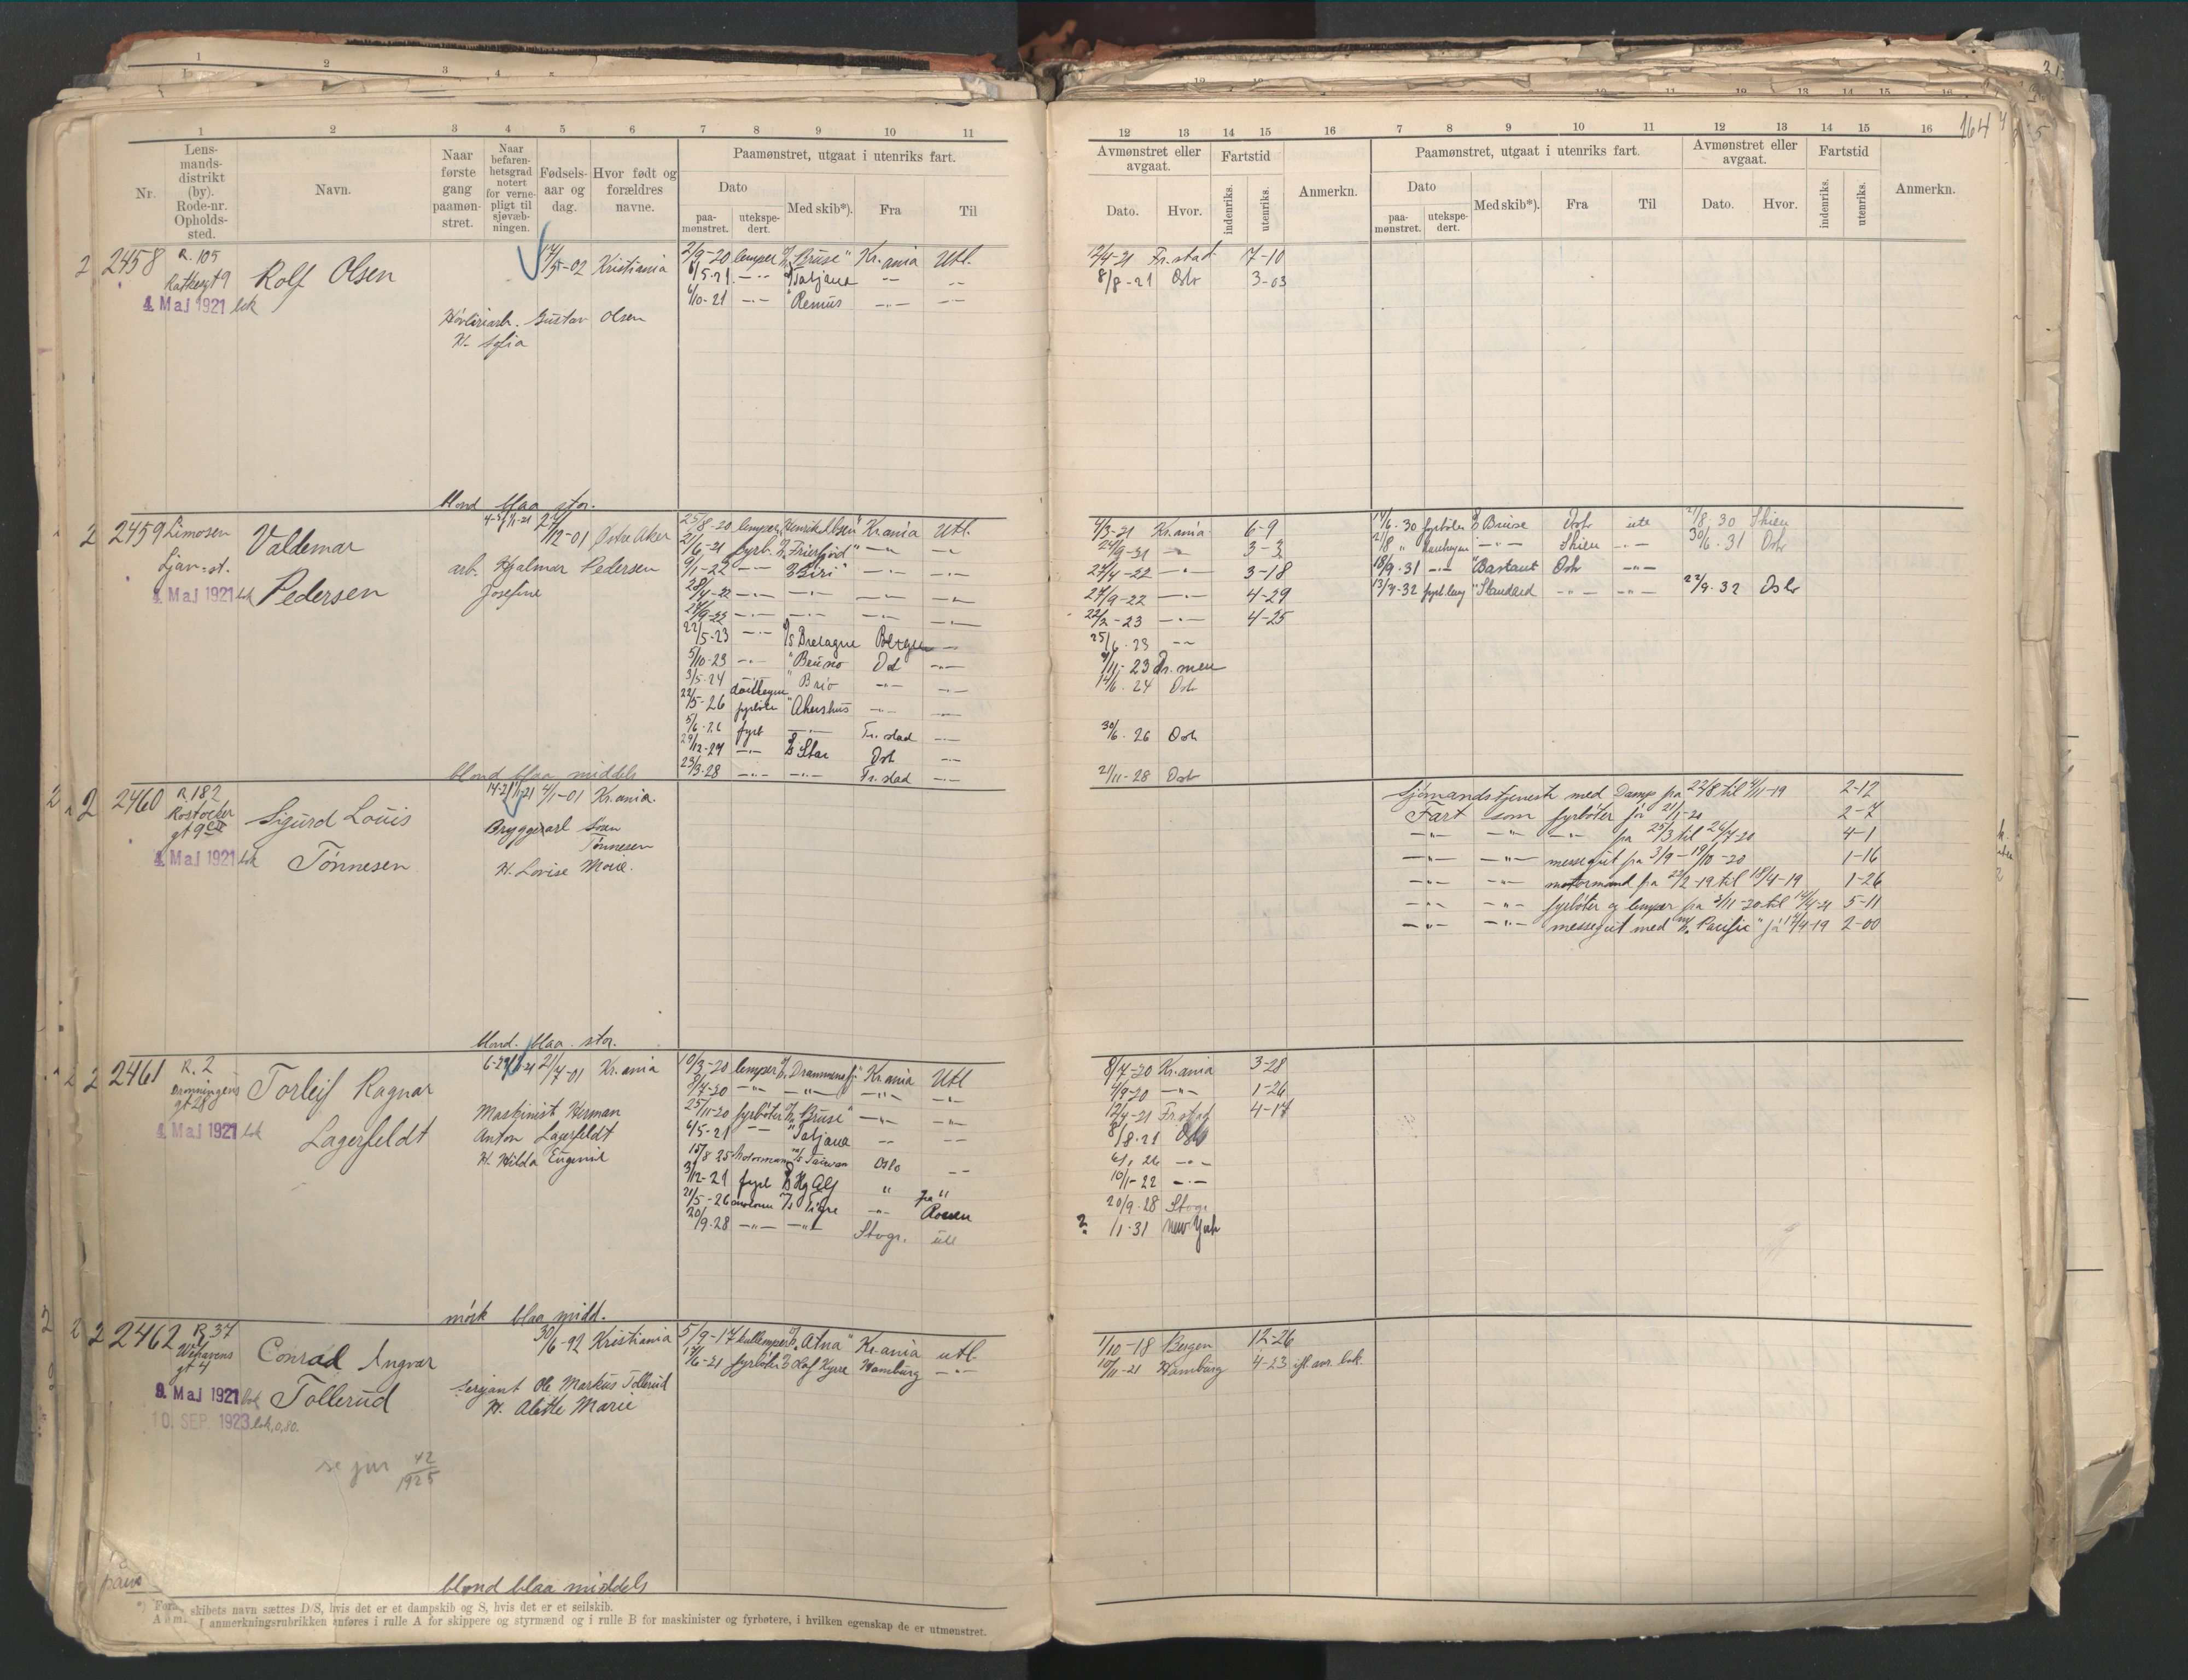 1 2 3 4 5 6 7 8 9 10 11
Nr. Lensmandsdistrikt (by). Rode-nr. Opholdssted. Navn. Naar første gang paamønstret. Naar befarenhetsgrad notert for vernepligt til sjøvæbningen. Fødselsaar og dag. Hvor født og forældres navne. Paamønstret, utgaat i utenriks fart.
Dato Med skib*). Fra Til
paamønstret. utekspedert.
2 2458 R. 105 Rolf Olsen 17/5-02 Kristiania 2/9-20 lemper D/S "Bruse" Kr.ania Utl.
6/5.21 -"- "Tatjana -"- -"-
4. Maj 1921 bok 6/10-21 -"- "Remus -"- -"-
Høvleriarb. Gustav Olsen
H. Sofia
blond blaa stor.
2 2459 Limosen Valdemar 12-01 Østre Aker 25/8-20 lemper "Henrik Ibsen" Kr.ania Utl.
Ljan st. 21/6-21 fyrb. "Frierfjord" -"- -"-
arb. Hjalmar Pedersen 9/1-22 -"- "Biri" -"- -"-
4. Maj 1921 bok Pedersen Josefine 28/4-22 -"- -"- -"- -"-
-"- -"- -"- -"-
22/5-23 -"- D/S Bretagne Bergen -"-
5/10-23 -"- "Bruno Osl -"-
3/5-24 "Brio -"- -"-
22/5-26 fyrbøter "Akershus -"- -"-
5/6-26 fyrb -"- Fr.stad -"-
29/12-27 -"- D/S Star Osl -"-
23/3-28 -"- -"- Fr.stad -"-
blond blaa middels
2 2460 R 182 Sigurd Louis 4/1-01 Kr.ania.
Rostocker gt 9 Bryggearb Søren Tønnesen
4. Maj 1921 bok Tønnesen H. Lovise Marie.
blond. blaa. stor.
2 2461 R. 2 Torleif Ragnar 21/7-01 Kr.ania 10/3-20 lemper D/S Drammensfj. Kr.ania Utl
Dronningens gt 28 8/7-20 -"- -"- -"- -"-
Maskinist Herman 25/11-20 fyrbøter D/S "Bruse" -"- -"-
4. Maj 1921 bok Lagerfeldt Anton Lagerfeldt 6/5-21 -"- "Tatjana -"- -"-
H. Hilda Eugenie 15/8 25 Motormand M/S Taiwan Oslo -"-
3/12-21 fyrb D/S Hg Alf " "
21/5-26 motorm M/S Tigre -"- Rouen
20/9-28 -"- -"- Stvgr. ute
mørk blaa midd.
2 2462 R 37 Conrad Ingvar 30/6-92 Kristiania 5/9-17 kullemper D/S "Atna" Kr.ania utl.
gt 4 17/6-21 fyrbøter D/S Hamburg -"-
9. Maj 1921 bok Tollerud Serjant Ole Markus Tollerud
10. SEP. 1923 bok, 0,80. H. Alette Marie
se jnr 42/1925
blond blaa middels
skibets navn sættes D/S, hvis det er et dampskib og S, hvis det er et seilskib.
I anmerkningsrubrikken anføres i rulle A for skippere og styrmænd og i rulle B for maskinister og fyrbøtere, i hvilken egenskap de er utmønstret.
12 13 14 15 16 7 8 9 10 11 12 13 14 15 16 164
Avmønstret eller avgaat. Fartstid Anmerkn. Paamønstret, utgaat i utenriks fart. Avmønstret eller avgaat. Fartstid Anmerkn.
Dato. Hvor. indenriks. utenriks. Dato Med skib*). Fra Til Dato. Hvor. indenriks. utenriks.
paamønstret. utekspedert.
12/4-21 Fr.stad 7-10
8/8-21 Oslo 3-03
4/3-21 Kr.ania 6-9 17/6-30 fyrbøter D/S Bruse Oslo ute 21/8.30 Skien
24/9-21 -"- 3-3 21/8 " -"- Skien -"- 30/6.31 Oslo
27/4-22 -"- 3-18 18/9.31 -"- "Bastant Oslo -"-
27/9-22 -"- 4-29 13/7-32 "Standard -"- -"- 22/9-32 Oslo
22/2-23 -"- 4-25
25/6.23 -"-
9/11-23 Dr.men
14/6.24 Oslo
30/6.26 Oslo
21/11-28 Oslo
Sjømandstjeneste med Damp fra 22/8 til 4/11-19 2-12
Fart som fyrbøter fra 21/1-20 2-7
-"- -"- -"- fra 25/3 til 26/7-20 4-1
-"- -"- messegut fra 3/9-19/10-20 1-16
-"- -"- motormand fra 22/2-19 til 18/4-19 1-26
-"- -"- fyrbøter og lemper fra 3/11-20 til 14/4-21 5-11
-"- -"- messegut med M/S "Pacific" fra 17/4-19 2-00
8/7-20 Kr.ania 3-28
4/9-20 -"- 1-26
12/4-21 Fr.stad 4-17
8/8.21 Oslo
6/1 26 -"-
10/1-22 -"-
20/9.28 Stvgr
? /1-31 New York
1/10-18 Bergen 12-26
10/11-21 Hamburg 4-23 ifl. avr. bok.